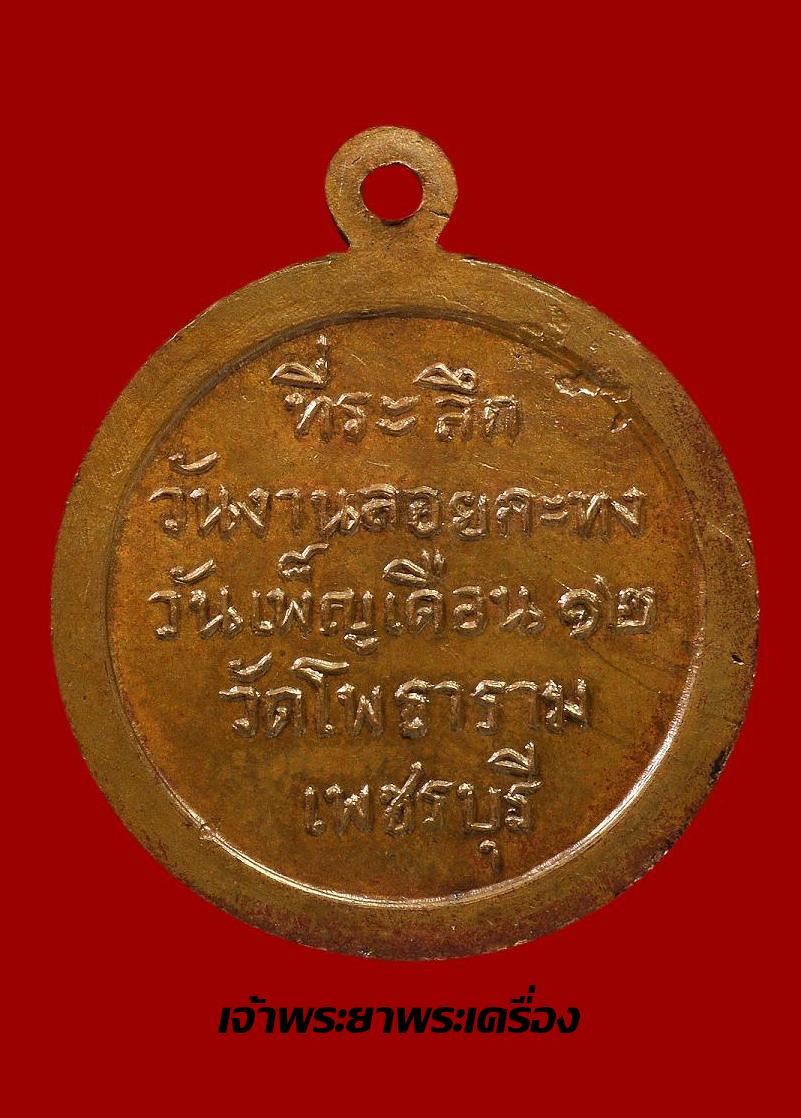 ที่ระลึก
วันงานลอยกะทง
วันเพ็ญเดือน ๑๒
วัดโพธาราม
เพชรบุรี
เจ้าพระยาพระเครื่อง